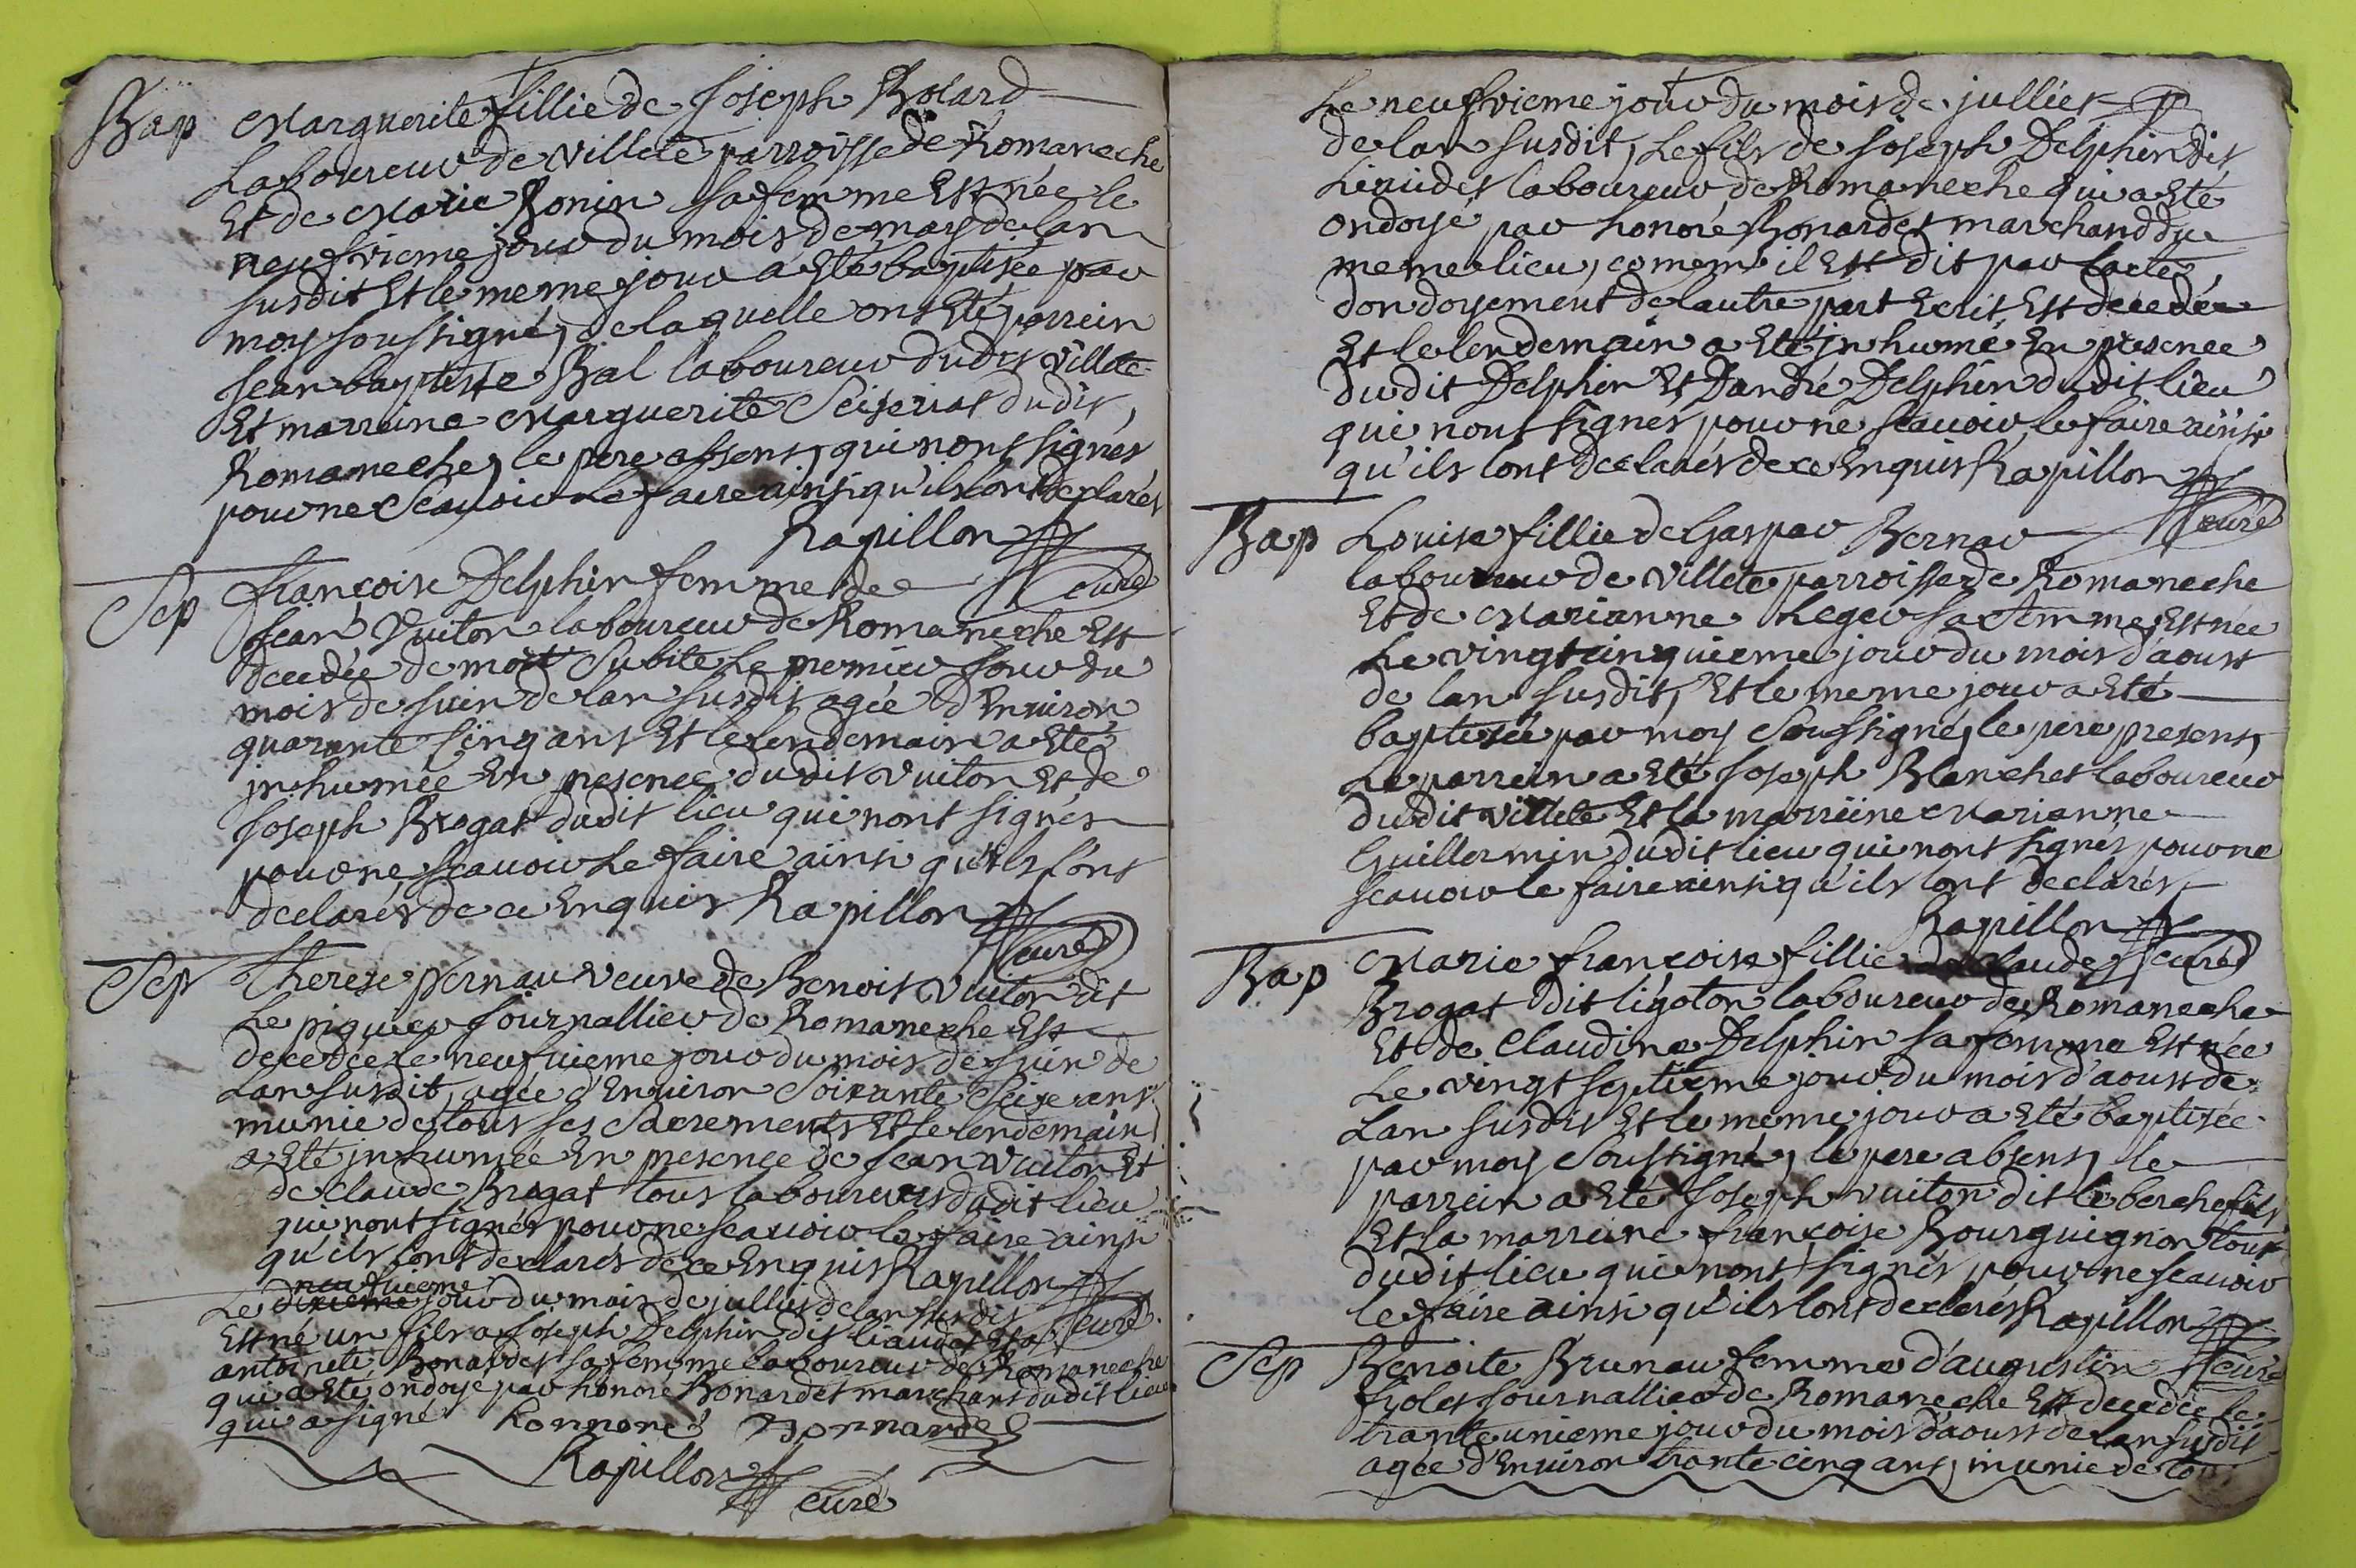 Bap Marguerite fillie de Joseph Rolard
Laboureur de villete parroisse de Romaneche
Et de Marie Bonin sa femme Est née le
neufvieme jour du mois de may de lan
susdit Et le meme jour a Eté baptisée par
moy soussigné, de laquelle ont Eté parrein
Jean baptiste Bal laboureur dudit villete
Et marreine Marguerite Seiserias dudit
Romaneche, le pere absent, qui nont signés
pour ne Scavoir Le faire ainsi qu'ils lont declarés
Rapillon
curé
Sep françoise Delphin femme de
Jean Vuiton laboureur de Romaneche Est
decedée de mort Subite Le premier Jour du
mois de Juin de lan susdit agée d'Environ
quarante cinq ans Et le lendemain a Eté
jnhumée En presence dudit vuiton Et de
Joseph Brogat dudit lieu qui nont signés
pour ne scavoir Le faire ainsi qu'ils lont
declarés de ce Enquis Rapillon
curé
Sep Therese pernau veuve de Benoit vuiton dit
Le piquier Journallier de Romaneche Est
decedée le neufvieme jour du mois de Juin de
Lan susdit, agée d'Environ Soixante Seize ans
munie de tous ses Sacrements Et le lendemain
a Eté jnhumée En presence de Jean vuiton Et
de claude Brogat tous laboureurs dudit lieu
qui nont signés pour ne scavoir le faire ainsi
qu'ils lont declarés de ce Enquis Rapillon
curé
neufvieme
Le dixieme jour du mois de jullies de lan susdit
Est né un fils a Joseph Delphin dit liaudet Et a
antoinete Bonardet sa femme laboureur de Romaneche
qui a Eté ondoyé par honoré Bonardet marchant dudit lieu
qui a signé honnoré Bonnardel
Rapillon
curé
Le neufvieme jour du mois de jullies
de lan susdit, Le fils de Joseph Delphin dit
Liaudet laboureur de Romaneche qui a Eté
ondoyé par honoré Bonardet marchand du
meme lieu, comme il Est dit par lacte
dondoyement de lautre part Ecrit Est decedé
Et le lendemain a Eté jnhumé En presence
dudit Delphin Et Dandré Delphin dudit lieu
qui nont signés pour ne scavoir le faire ainsi
qu'ils lont declarés de ce Enquis Rapillon
curé
Bap Louise fillie de Gaspar Bernar
laboureur de villete parroisse de Romaneche
Et de Marianne Leger sa femme, Est née
Le vingt cinquieme jour du mois d'aoust
de lan susdit, Et le meme jour a Eté
baptisée par moy Soussigné, le pere present,
Le parrein a Eté Joseph Blanchet laboureur
dudit villete Et la marreine Marianne
Guillermin dudit lieu qui nont signés pour ne
scavoir le faire ainsi qu'ils lont declarés
Rapillon
curé
Bap Marie françoise fillie de claude
Brogat dit ligoton laboureur de Romaneche
Et de Claudine Delphin sa femme Est née
Le vingt septieme jour du mois d'aoust de
Lan susdit Et le meme jour a Eté baptisée
par moy Soussigné, le pere absent, le
parrein a Eté Joseph vuiton dit le berche fils
Et la marreine françoise Bourguignon tous
dudit lieu qui nont signés pour ne scavoir
le faire ainsi qu'ils lont declarés Rapillon
curé
Sep Benoite Brunau femme d'augustin
fyolet Journallier de Romaneche Est decedée le
trante unieme jour du mois d'aoust de lan susdit
agée d'Environ trante cinq ans, munie de tous